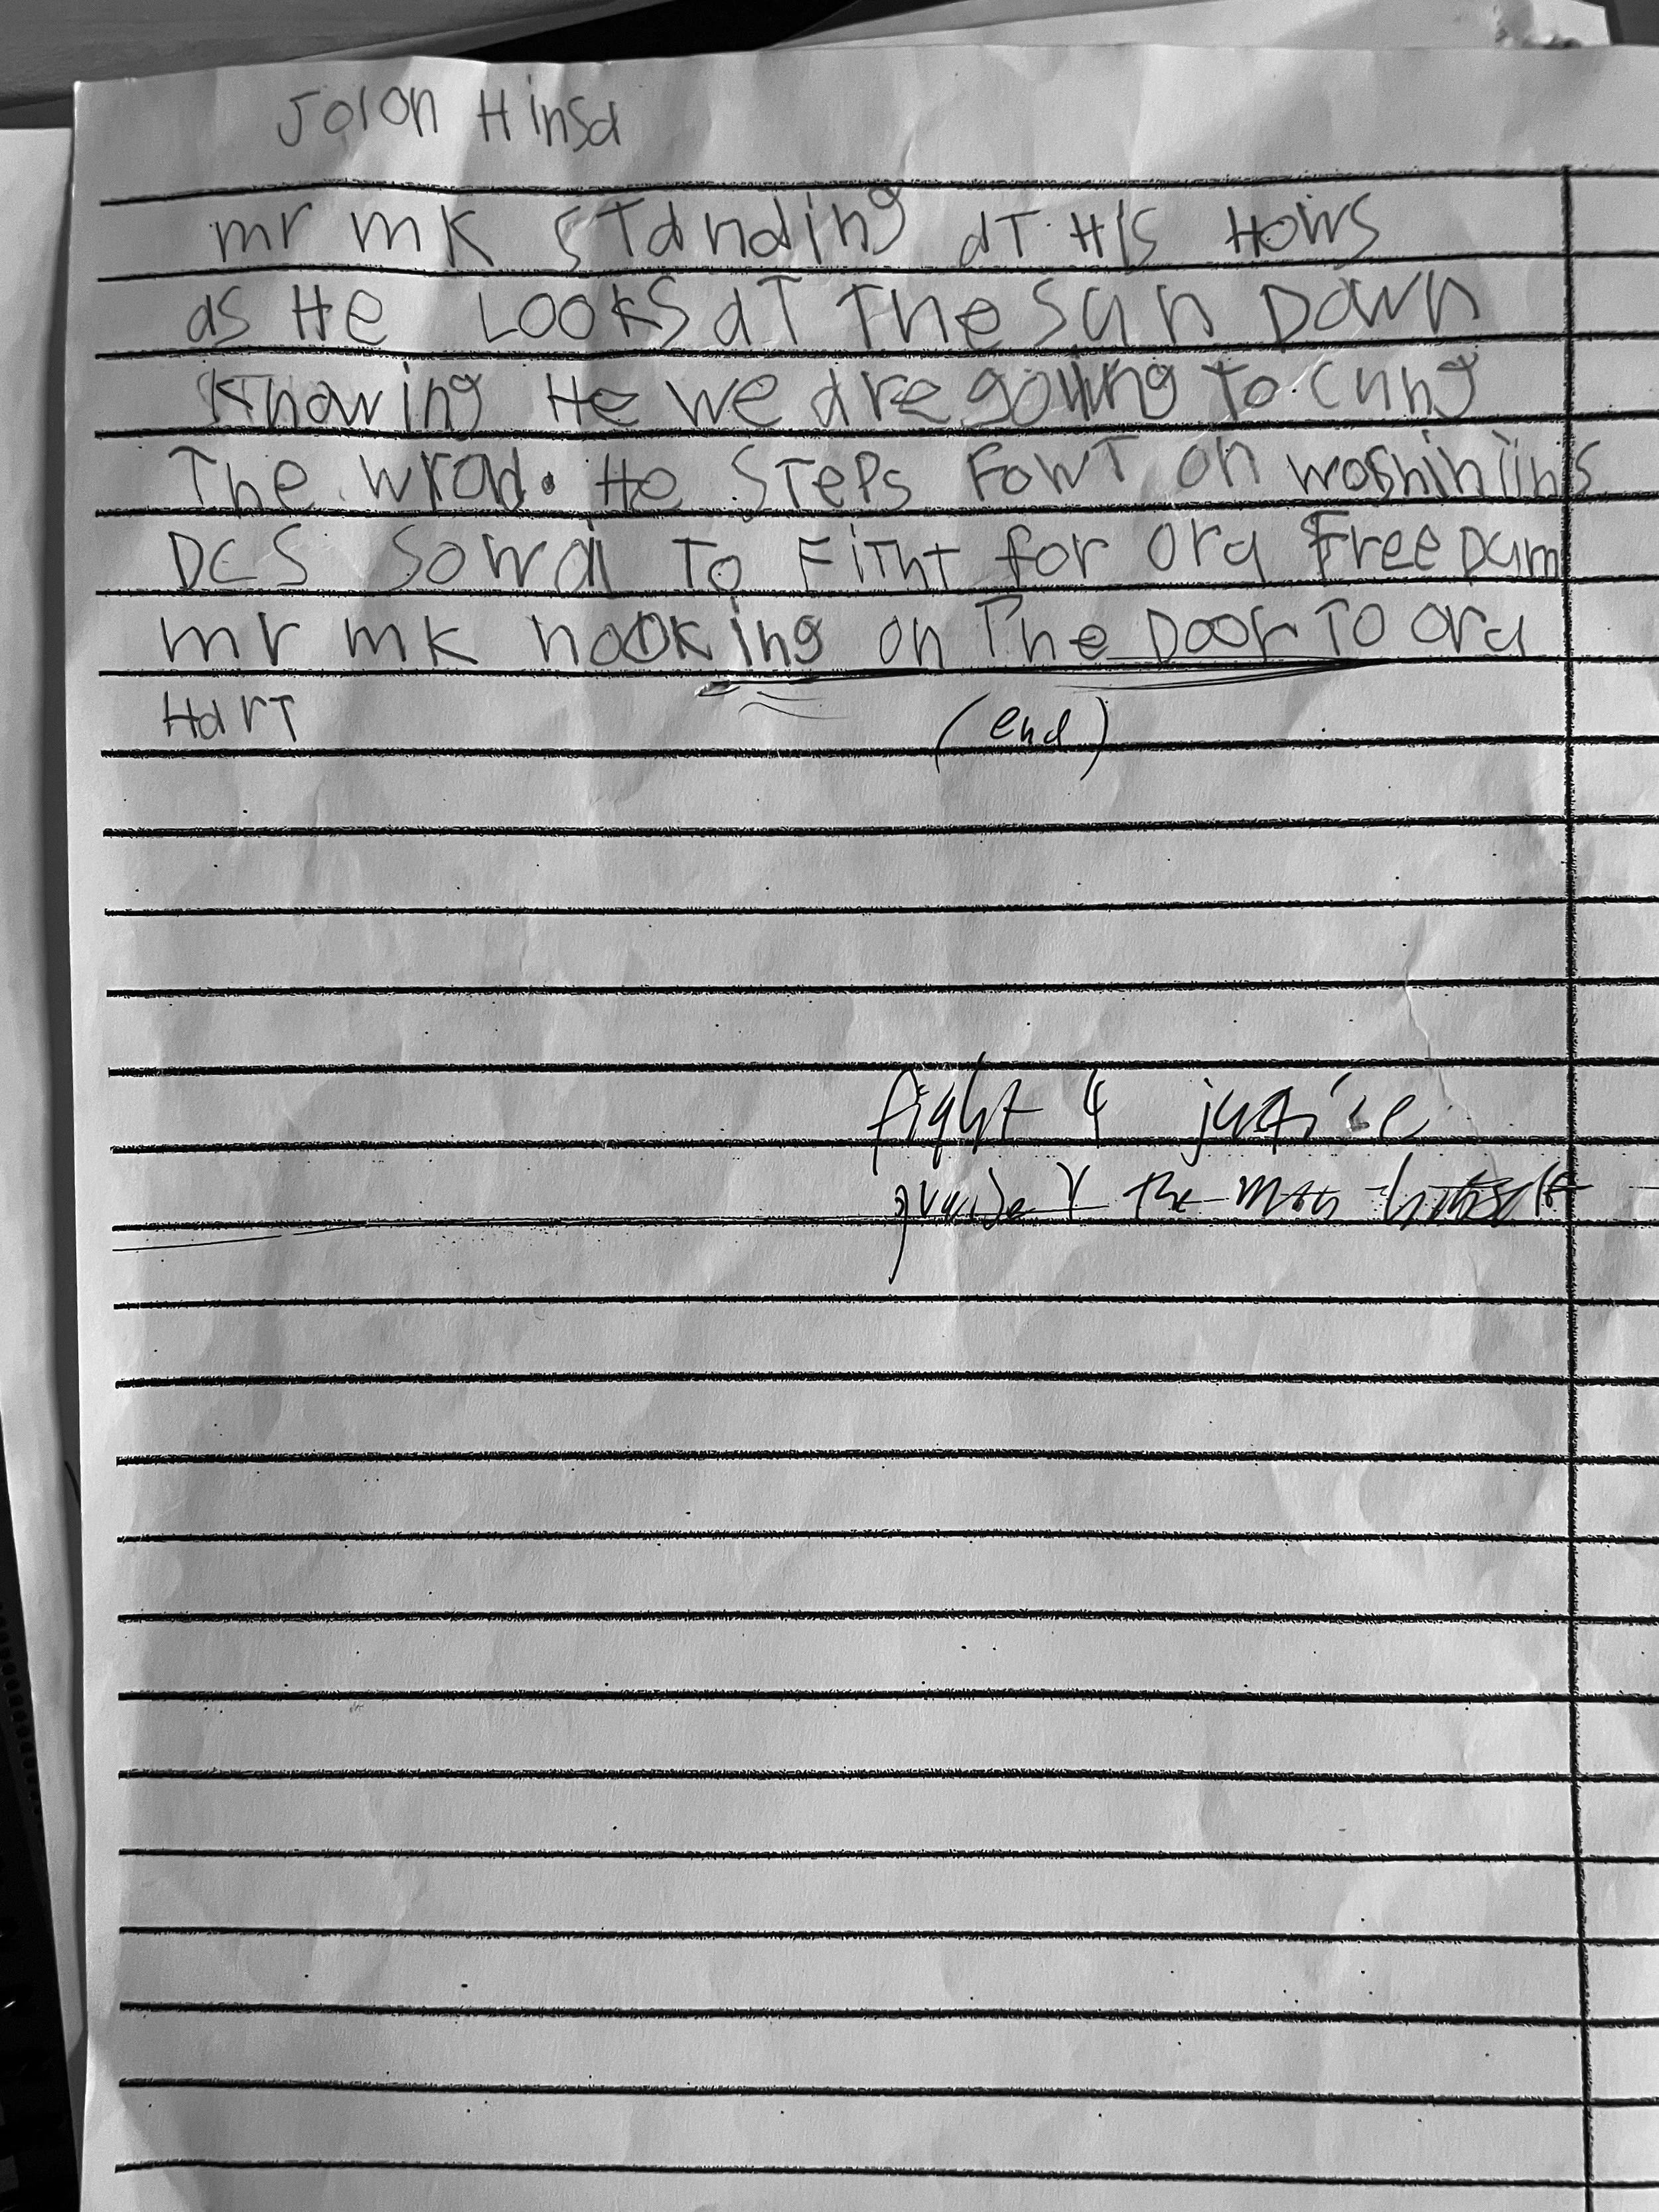 Jolon Hinsa
mr mk standing at His Hows
as He Looks at The sun Down
Knowing He we are going To cung
The wrad. He STePs FowT on woshintins
DCS Sowal To FiTht for ora FreeDum
mr mk nooking on The Door To ora
HarT
(end)
fight 4 justice
the man himself